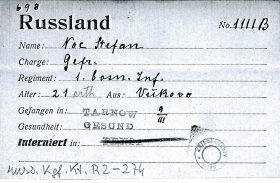 698
Russland No. 1111B
Name: Noc Stefan
Charge: Gefr.
Regiment: 1. bosn. Inf.
Alter: 21 orth. Aus: Vukovo
Gefangen in: TARNOW 9/III
Gesundheit: GESUND
Interniert in:
russ. Kgf. Kv. R2-274